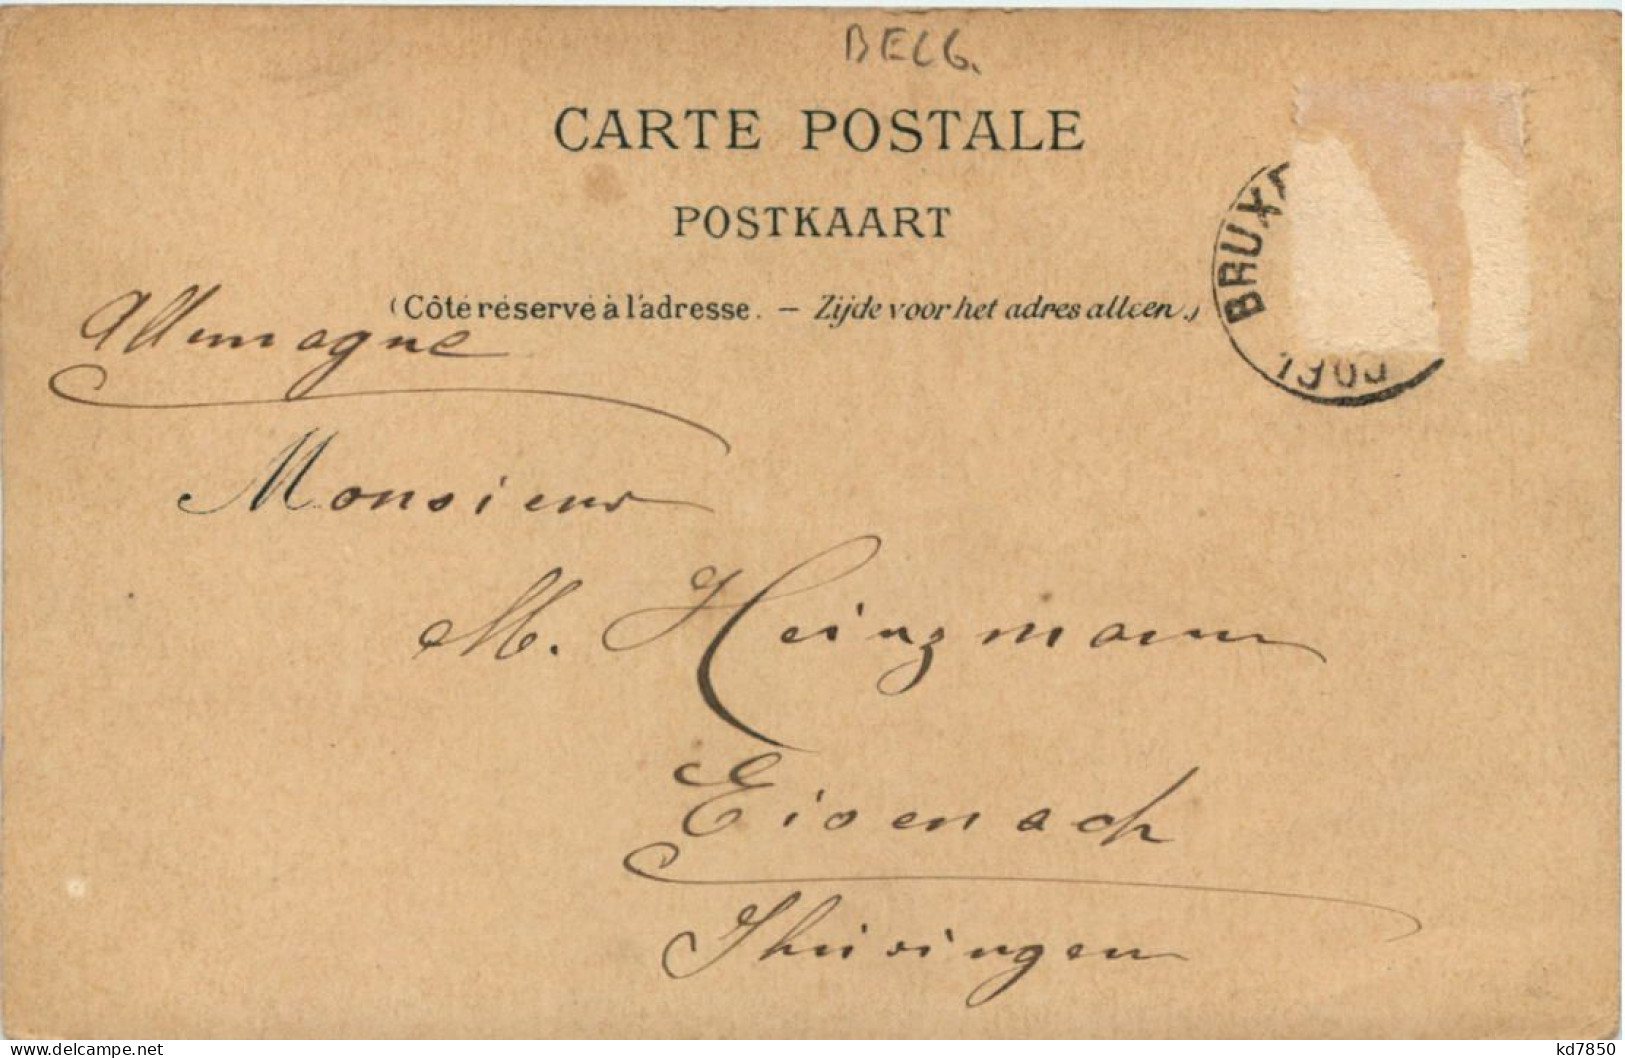 BELG.
CARTE POSTALE
POSTKAART
(Côté réservé à l'adresse. — Zijde voor het adres alleen.)
BRUX
Allemagne
Monsieur
M. Heinzmann
Eisenach
Thüringen
delcampe.net
kd7850